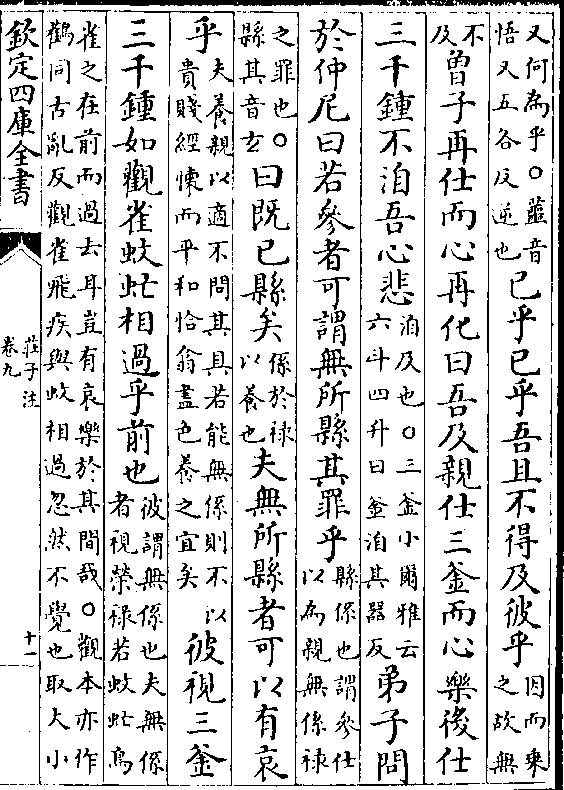 又何為乎○蘁音
悟又五各反逆也
已乎已乎吾且不得及彼乎
因而乗
之故無
不
及
曾子再仕而心再化曰吾及親仕三釜而心樂後仕
三千鍾不洎吾心悲
洎及也○三釜小爾雅云
六斗四升曰釜洎其器反
弟子問
於仲尼曰若參者可謂無所縣其罪乎
縣係也謂參仕
以為親無係祿
之罪也○
縣其音玄
曰既已縣矣
係於祿
以養也
夫無所縣者可以有哀
乎
夫養親以適不問其具若能無係則不以
貴賤經懐而平和恰翁盡色養之宜矣
彼視三釜
三千鍾如觀雀蚊虻相過乎前也
彼謂無係也夫無係
者視榮祿若蚊虻鳥
雀之在前而過去耳豈有哀樂於其間哉○觀本亦作
鸛同古亂反觀雀飛疾與蚊相過忽然不覺也取大小
欽定四庫全書
莊子注
卷九
十一